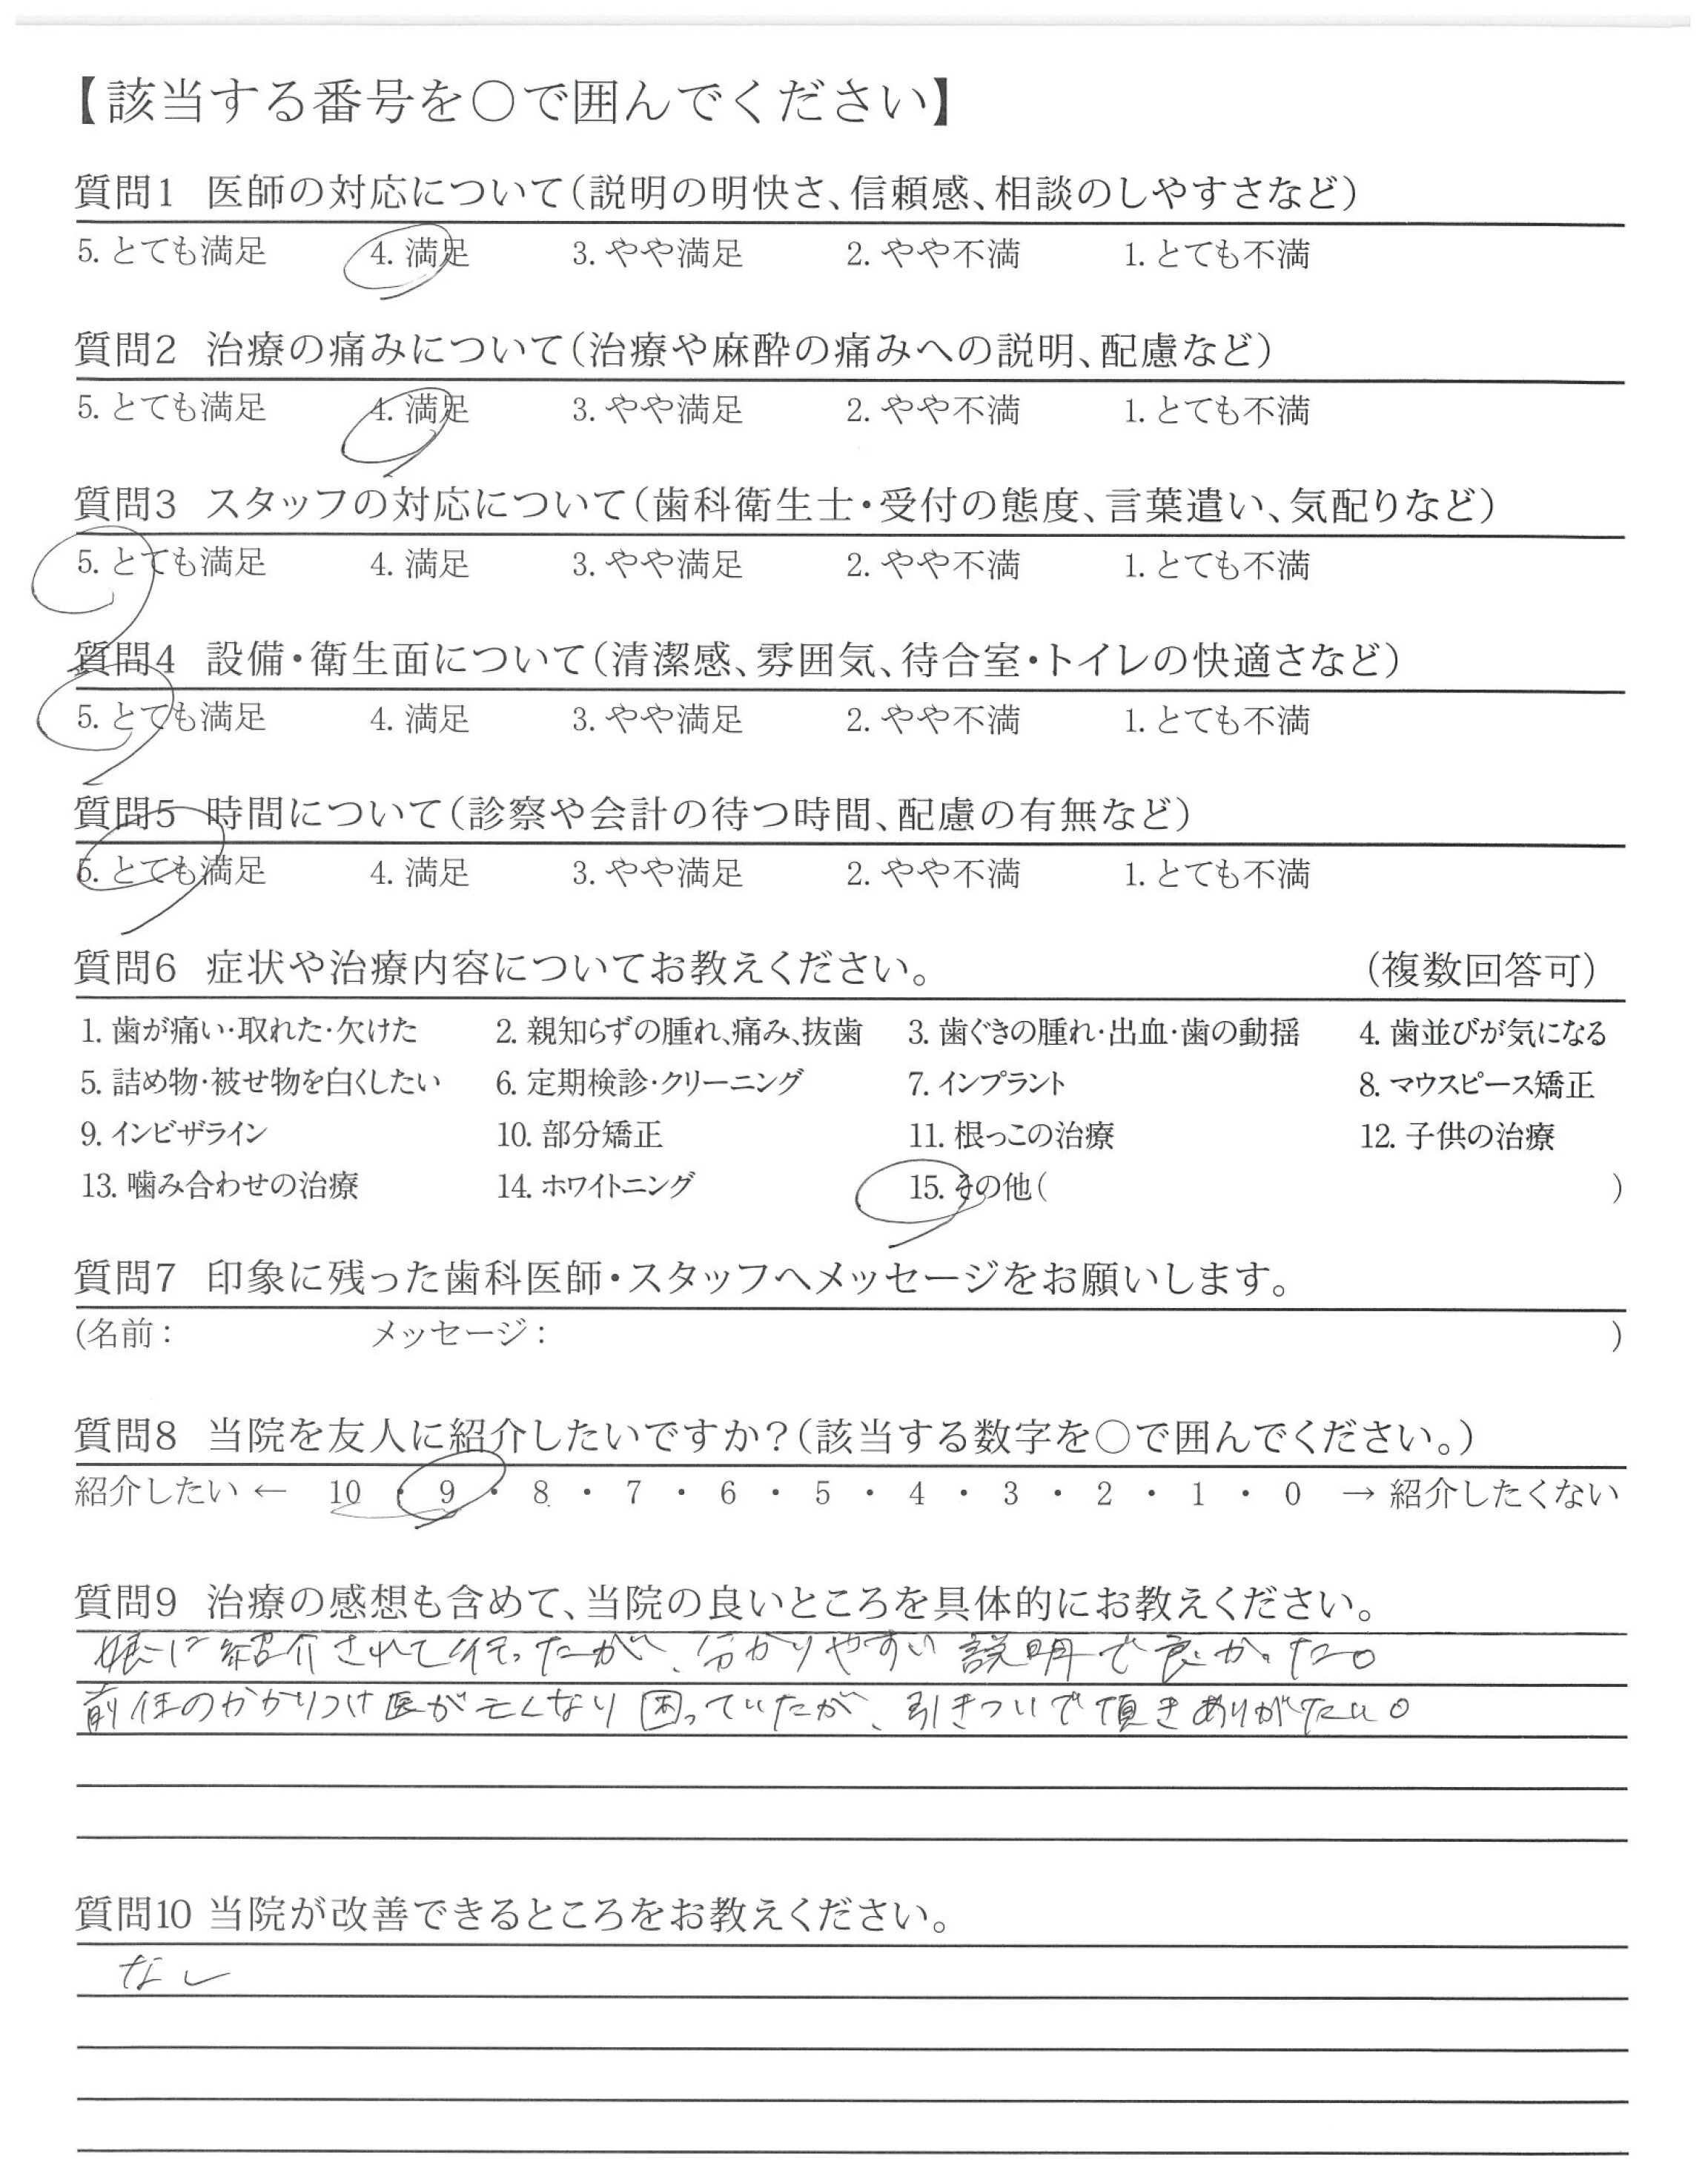 【該当する番号を○で囲んでください】
質問1 医師の対応について(説明の明快さ、信頼感、相談のしやすさなど)
5. とても満足 4. 満足 3. やや満足 2. やや不満 1. とても不満
質問2 治療の痛みについて(治療や麻酔の痛みへの説明、配慮など)
5. とても満足 4. 満足 3. やや満足 2. やや不満 1. とても不満
質問3 スタッフの対応について(歯科衛生士・受付の態度、言葉遣い、気配りなど)
5. とても満足 4. 満足 3. やや満足 2. やや不満 1. とても不満
質問4 設備・衛生面について(清潔感、雰囲気、待合室・トイレの快適さなど)
5. とても満足 4. 満足 3. やや満足 2. やや不満 1. とても不満
質問5 時間について(診察や会計の待つ時間、配慮の有無など)
5. とても満足 4. 満足 3. やや満足 2. やや不満 1. とても不満
質問6 症状や治療内容についてお教えください。 (複数回答可)
1. 歯が痛い・取れた・欠けた 2. 親知らずの腫れ、痛み、抜歯 3. 歯ぐきの腫れ・出血・歯の動揺 4. 歯並びが気になる
5. 詰め物・被せ物を白くしたい 6. 定期検診・クリーニング 7. インプラント 8. マウスピース矯正
9. インビザライン 10. 部分矯正 11. 根っこの治療 12. 子供の治療
13. 噛み合わせの治療 14. ホワイトニング 15. その他( )
質問7 印象に残った歯科医師・スタッフへメッセージをお願いします。
(名前: メッセージ: )
質問8 当院を友人に紹介したいですか?(該当する数字を○で囲んでください。)
紹介したい ← 10 ・ 9 ・ 8 ・ 7 ・ 6 ・ 5 ・ 4 ・ 3 ・ 2 ・ 1 ・ 0 → 紹介したくない
質問9 治療の感想も含めて、当院の良いところを具体的にお教えください。
娘に紹介されて行ったが、分かりやすい説明で良かった。
前任のかかりつけ医が亡くなり困っていたが、引きついで頂きありがたい。
質問10 当院が改善できるところをお教えください。
なし